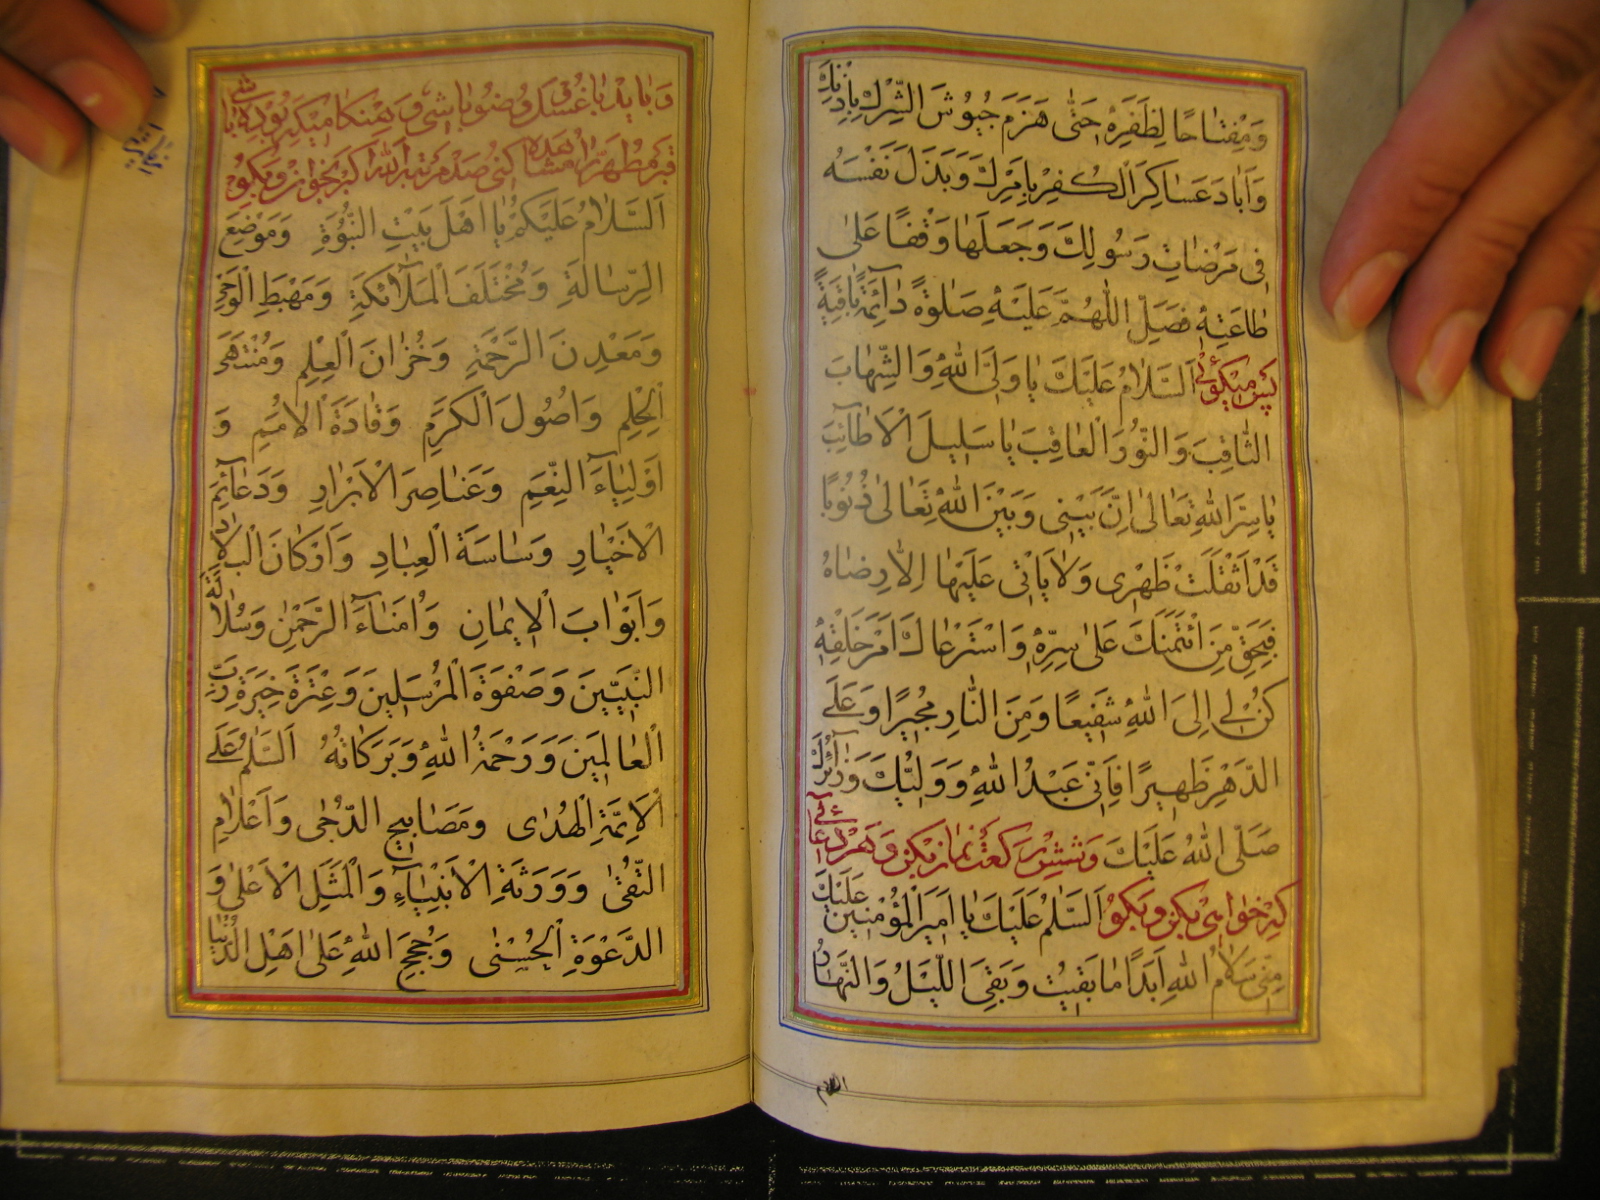 وَ مِفْتَاحًا لِظَفَرِهِ حَتّٰى هَزَمَ جُيُوشَ الشِّرْكِ بِاِذْنِكَ
وَاَبَادَ عَسَاكِرَ الْكُفْرِ بِاَمْرِكَ وَبَذَلَ نَفْسَهُ
فِى مَرْضَاتِ رَسُولِكَ وَجَعَلَهَا وَقْفًا عَلٰى
طَاعَتِهِ فَصَلِّ اللّٰهُمَّ عَلَيْهِ صَلٰوةً دَائِمَةً بَاقِيَةً
پس میکوئی اَلسَّلَامُ عَلَيْكَ يَا وَلِىَّ اللّٰهِ وَالشِّهَابَ
الثَّاقِبَ وَالنُّورَ الْعَاقِبَ يَا سَلِيلَ الْاَطَآئِبِ
يَا سِرَّ اللّٰهِ تَعَالٰى اِنَّ بَيْنِى وَبَيْنَ اللّٰهِ تَعَالٰى ذُنُوبًا
قَدْ اَثْقَلَتْ ظَهْرِى وَلَا يَاْتِى عَلَيْهَا اِلَّا رِضَاهُ
فَبِحَقِّ مَنِ ائْتَمَنَكَ عَلٰى سِرِّهِ وَاسْتَرْعَاكَ اَمْرَ خَلْقِهِ
كُنْ لِى اِلَى اللّٰهِ شَفِيعًا وَمِنَ النَّارِ مُجِيرًا وَعَلَى
الدَّهْرِ ظَهِيرًا فَاِنِّى عَبْدُ اللّٰهِ وَوَلِيُّكَ وَزَآئِرُكَ
صَلَّى اللّٰهُ عَلَيْكَ وشش رکعت نماز بکن و هر دعائی
که خواهی بکن و بکو اَلسَّلٰمُ عَلَيْكَ يَا اَمِيرَ الْمُؤْمِنِينَ عَلَيْكَ
مِنِّى سَلَامُ اللّٰهِ اَبَدًا مَا بَقِيتُ وَبَقِىَ اللَّيْلُ وَالنَّهَارُ
السلام
و باید با غسل و وضو باشی و
قبر مطهر را مشاهده کنی صد مرتبه اللّٰه اکبر بخوان و بکو
اَلسَّلَامُ عَلَيْكُمْ يَا اَهْلَ بَيْتِ النُّبُوَّةِ وَمَوْضِعَ
الرِّسَالَةِ وَمُخْتَلَفَ الْمَلَآئِكَةِ وَمَهْبِطَ الْوَحْىِ
وَمَعْدِنَ الرَّحْمَةِ وَخُزَّانَ الْعِلْمِ وَمُنْتَهَى
الْحِلْمِ وَاُصُولَ الْكَرَمِ وَقَادَةَ الْاُمَمِ وَ
اَوْلِيَآءَ النِّعَمِ وَعَنَاصِرَ الْاَبْرَارِ وَدَعَآئِمَ
الْاَخْيَارِ وَسَاسَةَ الْعِبَادِ وَاَرْكَانَ الْبِلَادِ
وَاَبْوَابَ الْاِيمَانِ وَاُمَنَآءَ الرَّحْمٰنِ وَسُلَالَةَ
النَّبِيِّينَ وَصَفْوَةَ الْمُرْسَلِينَ وَعِتْرَةَ خِيَرَةِ رَبِّ
الْعَالَمِينَ وَرَحْمَةُ اللّٰهِ وَبَرَكَاتُهُ اَلسَّلٰمُ عَلٰى
الْاَئِمَّةِ الْهُدٰى وَمَصَابِيحِ الدُّجٰى وَاَعْلَامِ
التُّقٰى وَوَرَثَةِ الْاَنْبِيَآءِ وَالْمَثَلِ الْاَعْلٰى وَ
الدَّعْوَةِ الْحُسْنٰى وَحُجَجِ اللّٰهِ عَلٰى اَهْلِ الدُّنْيَا